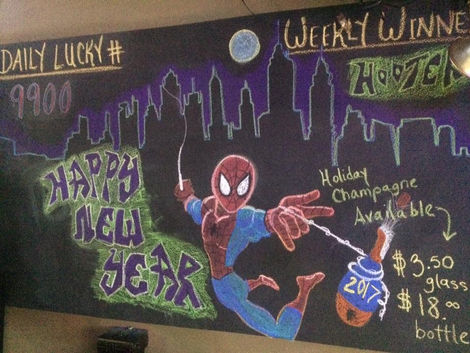 DAILY LUCKY #
9900
WEEKLY WINNE
HOOTEN
HAPPY
NEW
YEAR
Holiday
Champagne
Available
$3.50
glass
$18.00
bottle
2017